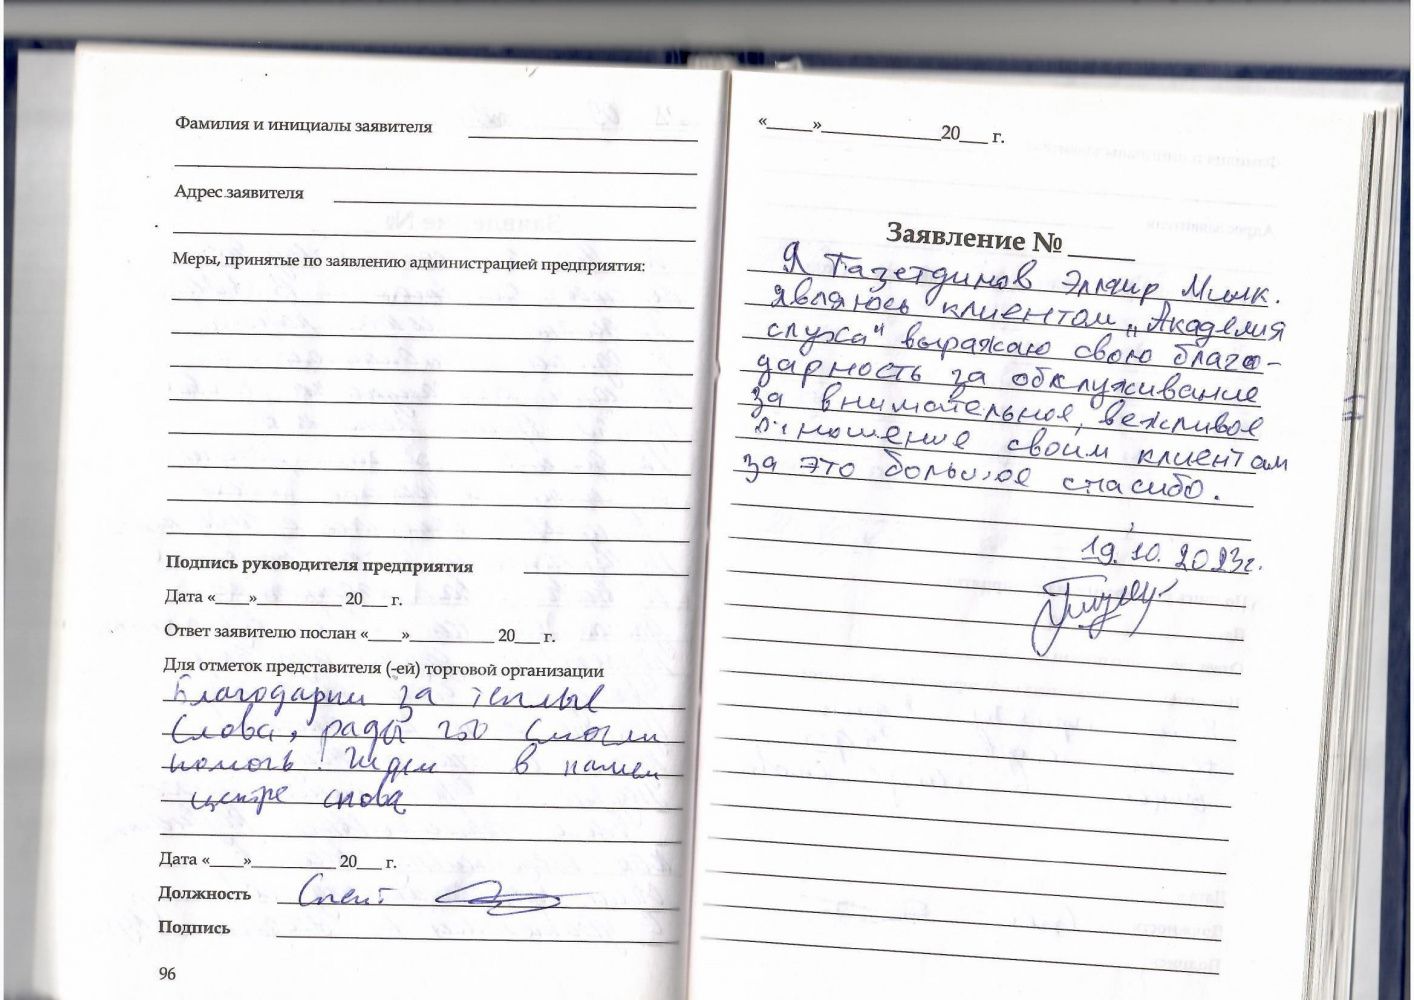 Фамилия и инициалы заявителя
Адрес заявителя
Меры, принятые по заявлению администрацией предприятия:
Подпись руководителя предприятия
Дата «____»__________ 20___ г.
Ответ заявителю послан «____»__________ 20___ г.
Для отметок представителя (-ей) торговой организации
Благодарим за теплые
слова, рады что смогли
помочь! Ждем в нашем
центре снова
Дата «____»__________ 20___ г.
Должность
Подпись
96
«_____»_____________20___ г.
Заявление № _____
Я Газетдинов Мник.
являюсь клиентом „Академия
слуха" выражаю свою благо-
дарность за обслуживание
за внимательное, вежливое
отношение своим клиентам
за это большое спасибо.
19.10.2023г.